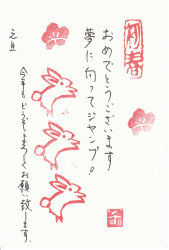 迎春
おめでとうございます
夢に向ってジャンプ。
今年もどうぞよろしくお願い致します。
元旦